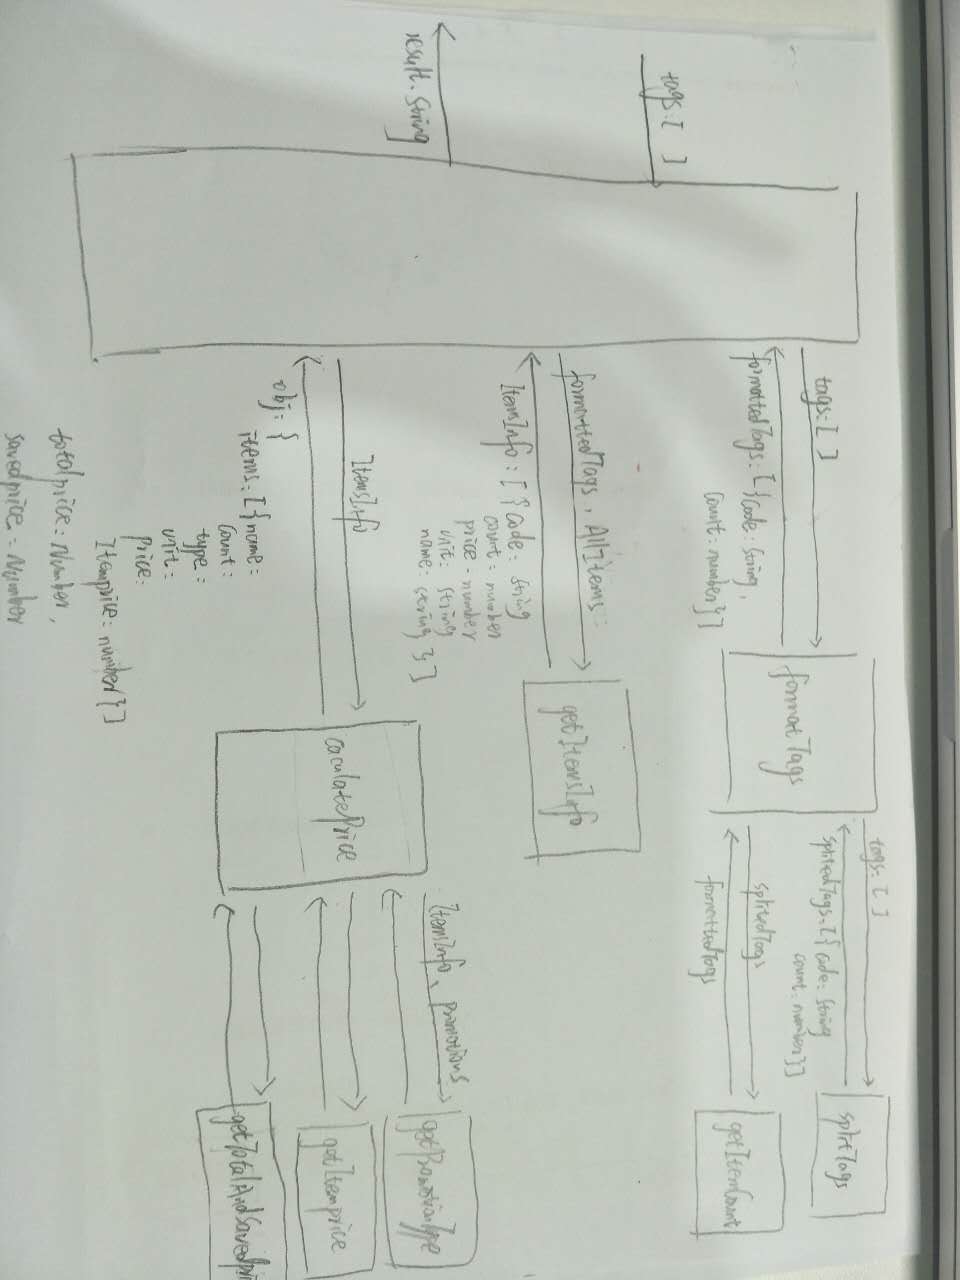 tags: [ ]
result: string
tags: [ ]
formattedTags: [ { code: string,
count: number } ]
formatTags
tags: [ ]
splitedTags: [ { code: string
count: number } ]
splitTags
splitedTags
formattedTags
getItemCount
formattedTags, AllItems:
ItemsInfo: [ { code: string
count: number
price: number
unit: string
name: string } ]
getItemsInfo
ItemsInfo
obj: {
items: [ { name:
count:
type:
unit:
price:
Itemprice: number } ]
totalprice: Number,
savedprice: Number
caculatePrice
ItemsInfo, promotions
getPromotionType
getItemprice
getTotalAndSavedpri